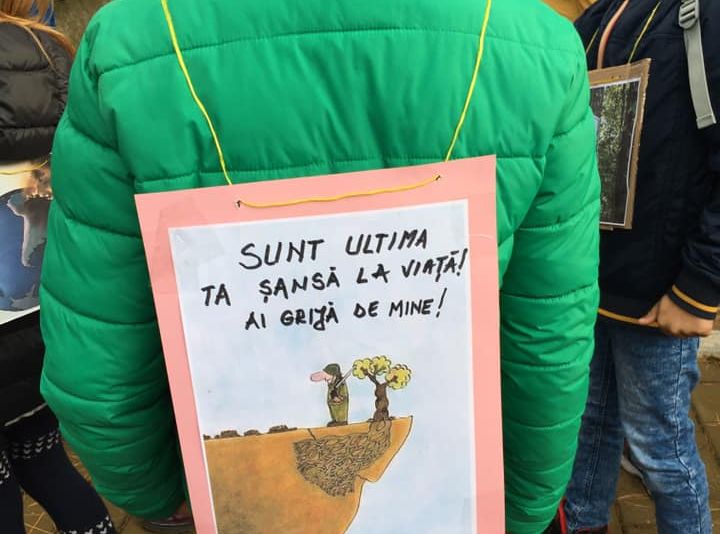 SUNT ULTIMA
TA ȘANSĂ LA VIAȚĂ!
AI GRIJĂ DE MINE!